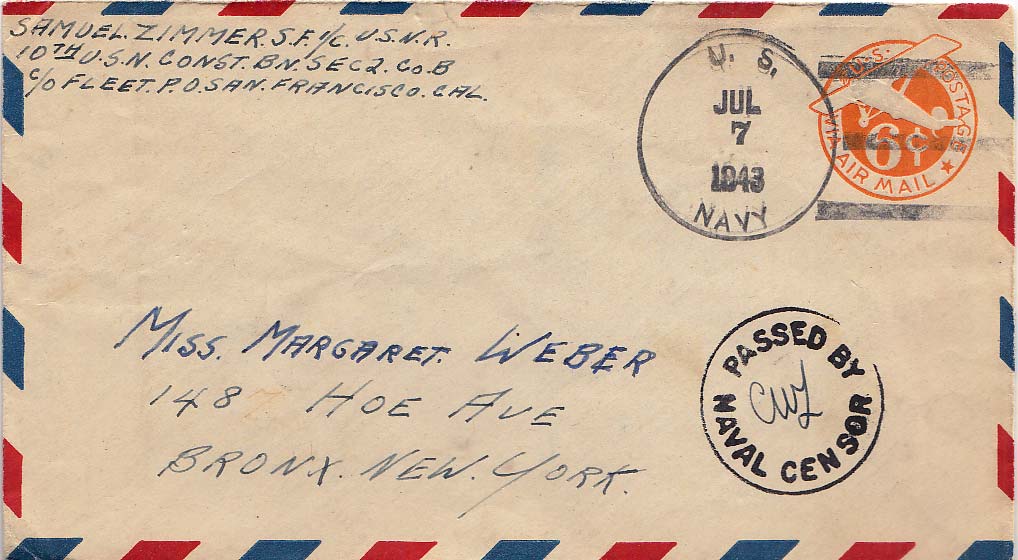 SAMUEL. ZIMMER. S.F. 1/C. U.S.N.R.
10TH U.S.N. CONST. BN. SEC 2. CO. B
C/O FLEET. P.O. SAN. FRANCISCO. CAL.
U. S.
JUL
7
1943
NAVY
U.S. POSTAGE
6¢
VIA AIR MAIL
MISS. MARGARET. WEBER
148 HOE AVE
BRONX. NEW. YORK.
PASSED BY
CWZ
NAVAL CENSOR